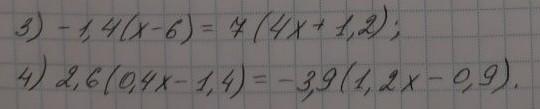 3) -1,4(x-6) = 7(4x+1,2);
4) 2,6(0,4x-1,4) = -3,9(1,2x-0,9).